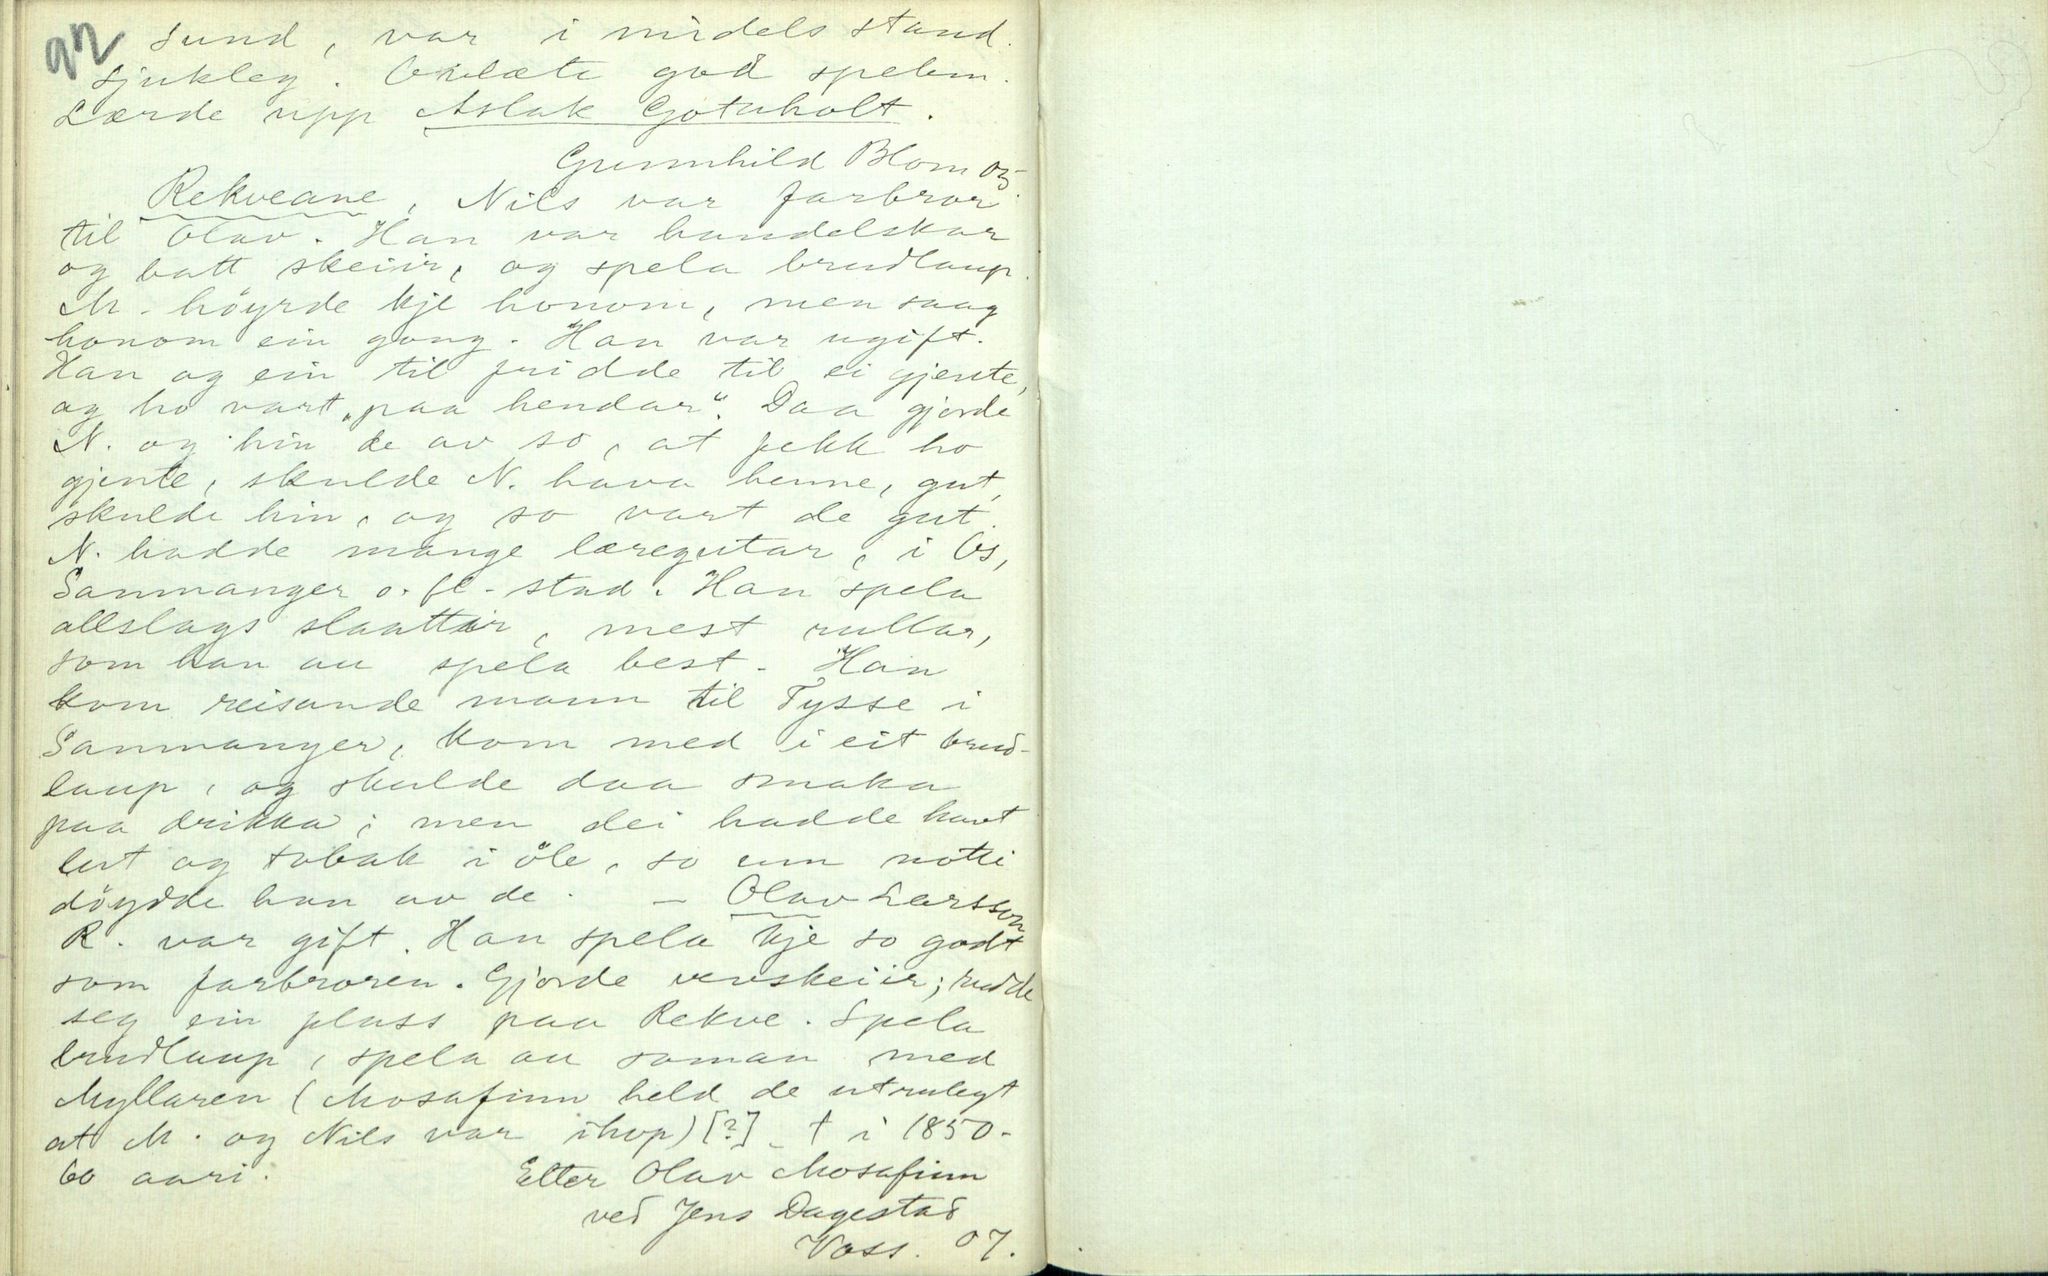 92
sund, var i midels stand.
sjukleg. Ovlæte god spelem.
Lærde upp Aslak Gotuholt.
Gunnhild Blom 05.
Rekveane, Nils var farbror
til Olav. Han var handelskar
og batt skeiir, og spela brudlaup.
M. høyrde kje honom, men saag
honom ein gong. Han var ugift.
Han og ein til fridde til ei gjente,
og ho vart „paa hendar“. Daa gjorde
N. og hin de av so, at fekk ho
gjente, skulde N. hava henne, gut,
skulde hin, og so vart de gut.
N. hadde mange læregutar, i Os,
Sanmanger o. fl. stad. Han spela
allslags slaattar, mest rullar,
som han au spela best. Han
kom reisande mann til Tysse i
Sanmanger, kom med i eit brud-
laup, og skulde daa smaka
paa drikka; men dei hadde havt
lut og tobak i öle, so um notti
döydde han av de. — Olav Larsson
R. var gift. Han spela kje so godt
som farbroren. Gjorde vevskeiir; rudde
seg ein plass paa Rekve. Spela
brudlaup, spela au saman med
Myllaren (Mosafinn held de utrulegt
at M. og Nils var ihop) [?] † i 1850-
60 aari.
Etter Olav Mosafinn
ved Jens Dagestad
Voss. 07.